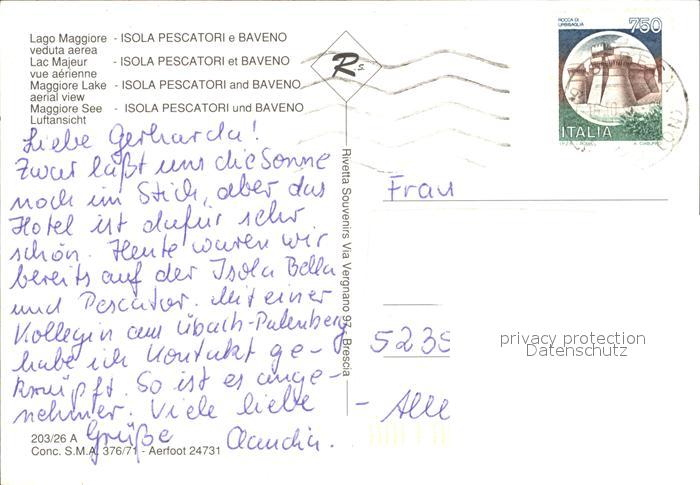 Lago Maggiore - ISOLA PESCATORI e BAVENO
veduta aerea
Lac Majeur - ISOLA PESCATORI et BAVENO
vue aérienne
Maggiore Lake - ISOLA PESCATORI and BAVENO
aerial view
Maggiore See - ISOLA PESCATORI und BAVENO
Luftansicht
Rs.
ROCCA DI
URBISAGLIA
750
ITALIA
Liebe Gerharda!
Zwar läßt uns die Sonne
noch im Stich, aber das
Hotel ist dafür sehr
schön. Heute waren wir
bereits auf der Isola Bella
und Pescator. Mit einer
Kollegin aus Übach-Palenberg
habe ich Kontakt ge-
knüpft. So ist es ange-
nehmer. Viele liebe
Grüße Claudia.
Rivetta Souvenirs Via Vergnano 97 - Brescia
Frau
5239
- Alle
privacy protection
Datenschutz
203/26 A
Conc. S.M.A. 376/71 - Aerfoot 24731